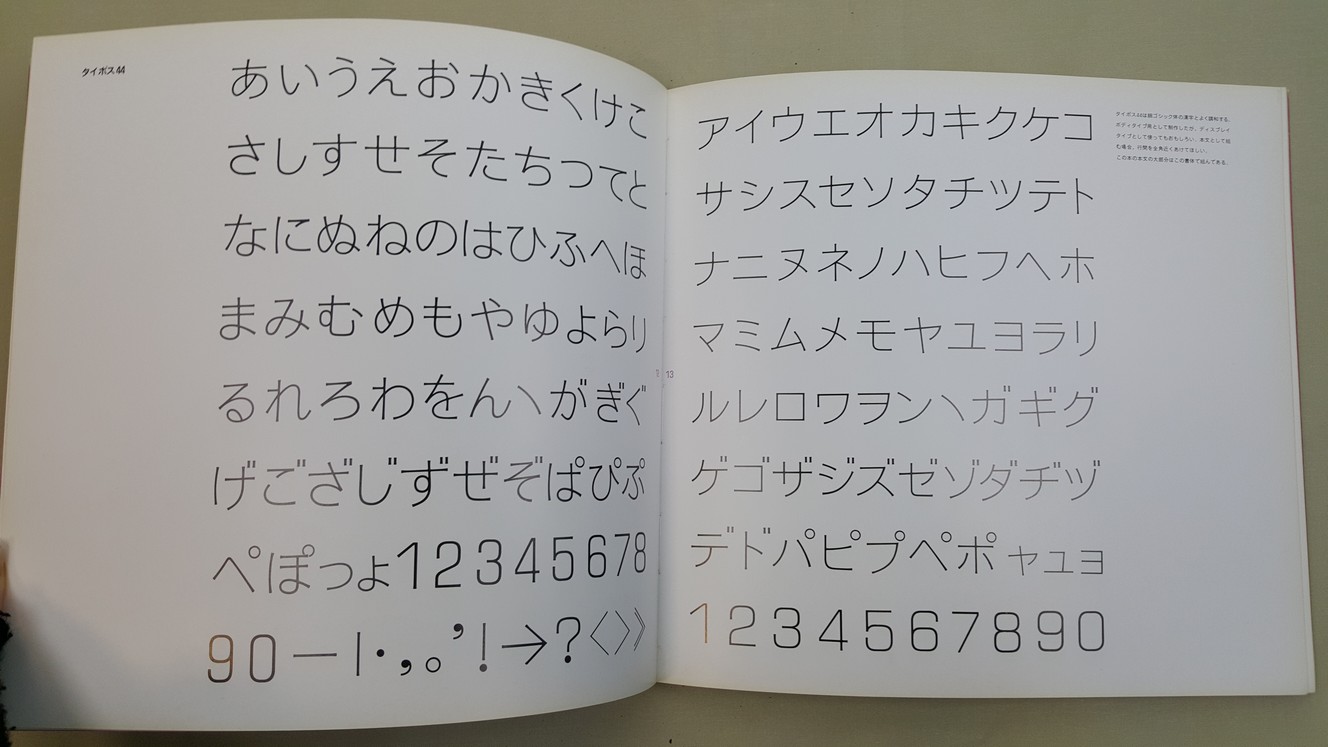 タイポス44
あいうえおかきくけこ
さしすせそたちつてと
なにぬねのはひふへほ
まみむめもやゆよらり
るれろわをん\がぎぐ
げござじずぜぞぱぴぷ
ぺぽっょ12345678
90—|・,。’!→?〈〉》
13
アイウエオカキクケコ
サシスセソタチツテト
ナニヌネノハヒフヘホ
マミムメモヤユヨラリ
ルレロワヲン\ガギグ
ゲゴザジズゼゾダヂヅ
デドパピプペポャュョ
1234567890
タイポス44は細ゴシック体の漢字とよく調和する。
ボディタイプ用として制作したが、ディスプレイ
タイプとして使ってもおもしろい。本文として組
む場合、行間を全角近くあけてほしい。
この本の本文の大部分はこの書体で組んである。